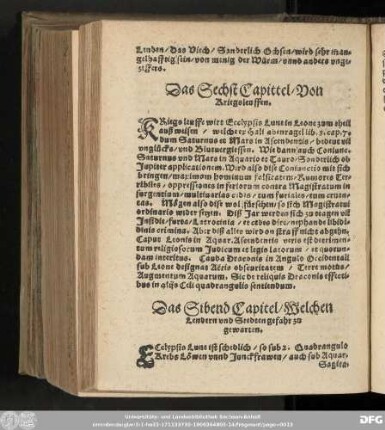 Lenden / Das Viech / Sonderlich Ochsen / wird sehr man-
gelhafftig sein / von menig der Würm / vnnd anders vnge-
ziffers.
Das Sechst Capittel / Von
Kriegsleuffen.
Kriegsleuffe wirt Ecclypsis Lune in Leone zum theil
auß wissen / welcher Hali abenragel lib. 8. cap. 7.
dum Saturnus et Mars in Ascendentis / bedeut vil
vnglücks / vnd Blutuergiessen. Wie dann auch Coniunc.
Saturnus vnd Mars in Aquario et Tauro / Sonderlich ob
Jupiter applicationem. Wird also dise Coniunctio mit sich
bringen / maximam hominum falsitatem / Rumores Ter-
ribiles / oppressiones in
surgentium / multiuarias cedis / tum furiales / tum cruen-
tas. Mögen also dise wol fürsehen / so sich Magistratui
ordinario wider setzen. Diß Jar werden sich zu tragen vil
Insidie / furta / Latrocinia / et cedes dire / nephande libidi-
dinis crimina. Aber diß alles wird on straff nicht abgehn /
Caput Leonis in Aquar. Ascendentis veris est detrimen-
tum religiosorum Judicum et legis latorum / et quorun-
dam interitus. Cauda Draconis in Angulo Occidentali
sub Leone designat Aëris obscuritatem / Terre motus /
Augmentum Aquarum. Sic de reliquis Draconis effecti-
bus in alijs Celi quadrangulis sentiendum.
Das Sibend Capitel / Welchen
Lendern vnd Stedten gefahr zu
gewarten.
Ecclypsis Lune ist schedlich / so sub 2. Quadrangulo
Krebs Löwen vnnd Junckfrawen / auch sub Aquar.
Sagita-
Universitäts- und Landesbibliothek Sachsen-Anhalt
DFG